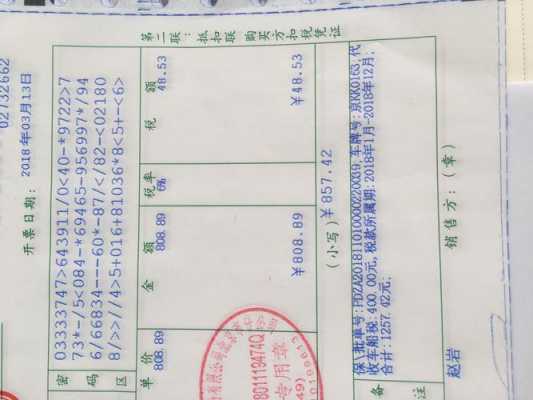 02732662
开票日期: 2018年03月13日
第二联: 抵扣联 购买方扣税凭证
密码区
03333747>643911/0<40-*9722>7
73*-/5<084-*69465-956997*/94
6/66834---60*-87/</82-<02180
8/>>//4>5+016+81036*8<5+-<6>
单价 金额 税率 税额
808.89 808.89 6% 48.53
¥808.89 ¥48.53
(小写) ¥857.42
备注
保(批单号:PDZA20181101000022003​9, 车牌号:京KK0163, 代
收车船税:400.00元, 税款所属期:2018年1月-2018年12月;
合计:1257.42元;
赵岩
销售方: (章)
专用章